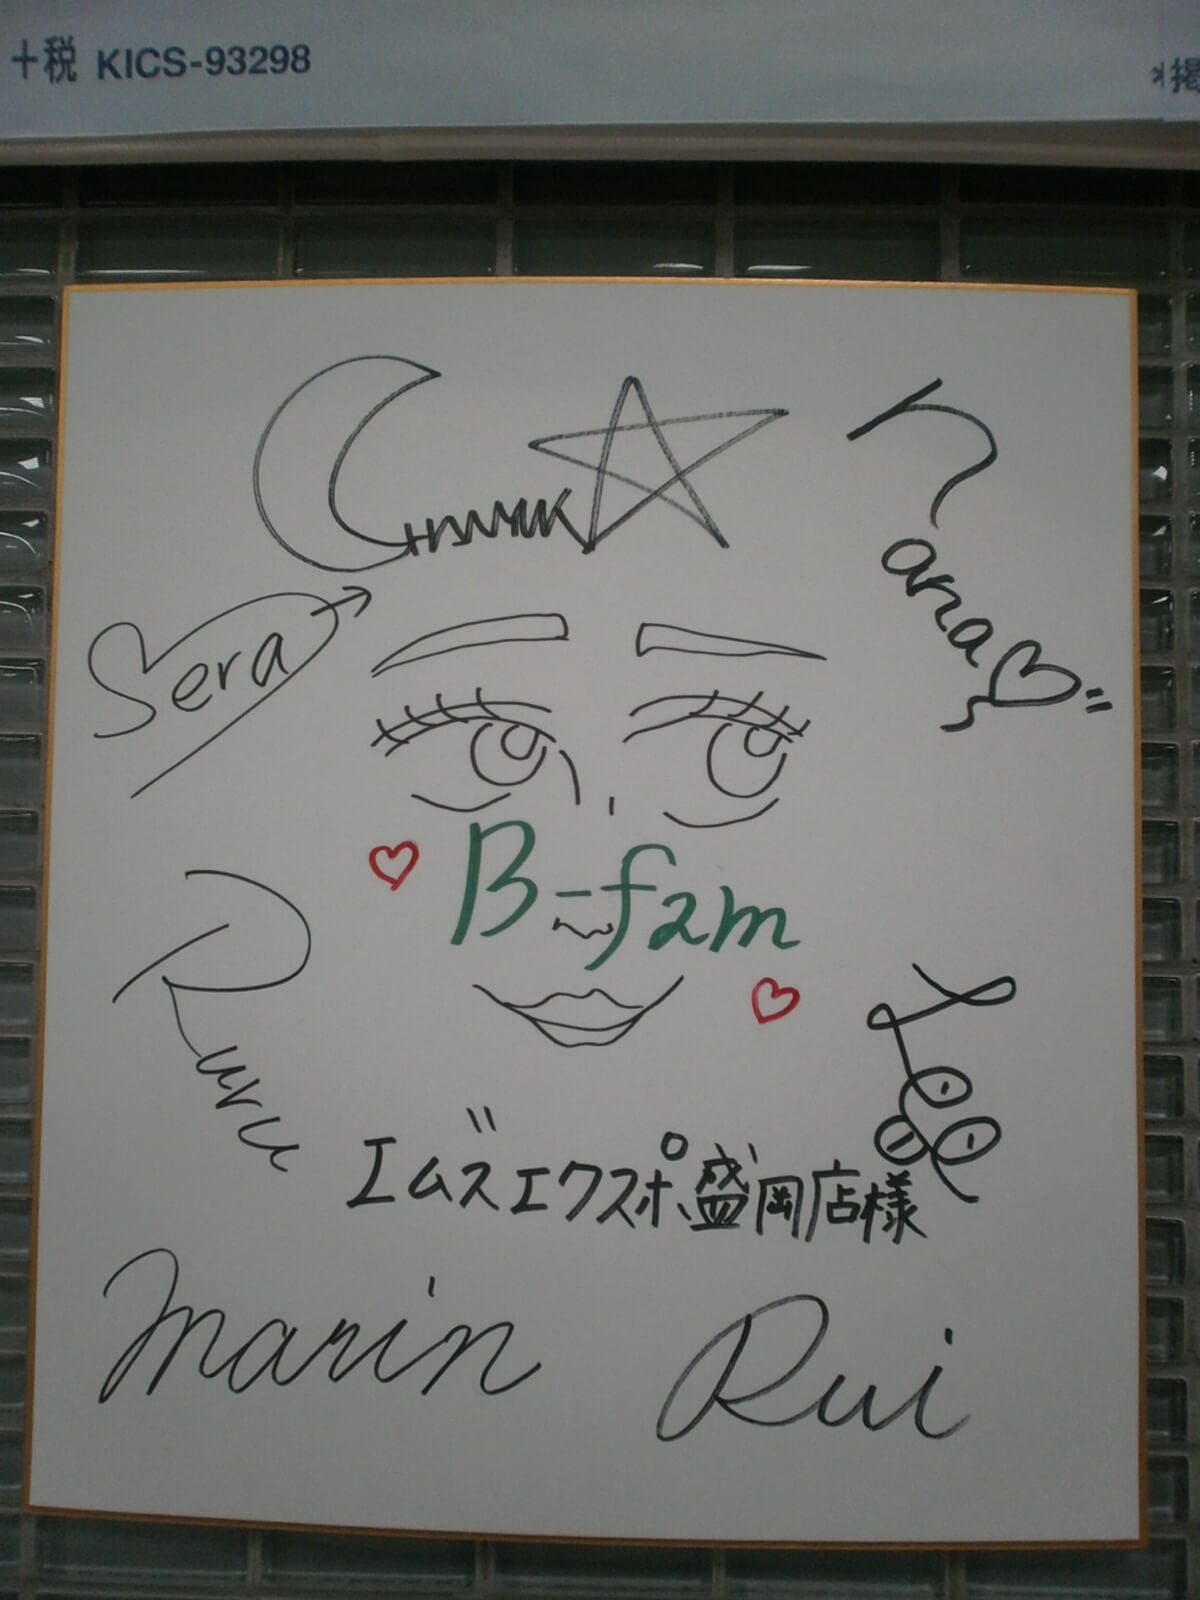 +税 KICS-93298
※掲
Nana
Sera
B-fam
Ruru
Lee
エムズエクスポ盛岡店様
marin
Rui